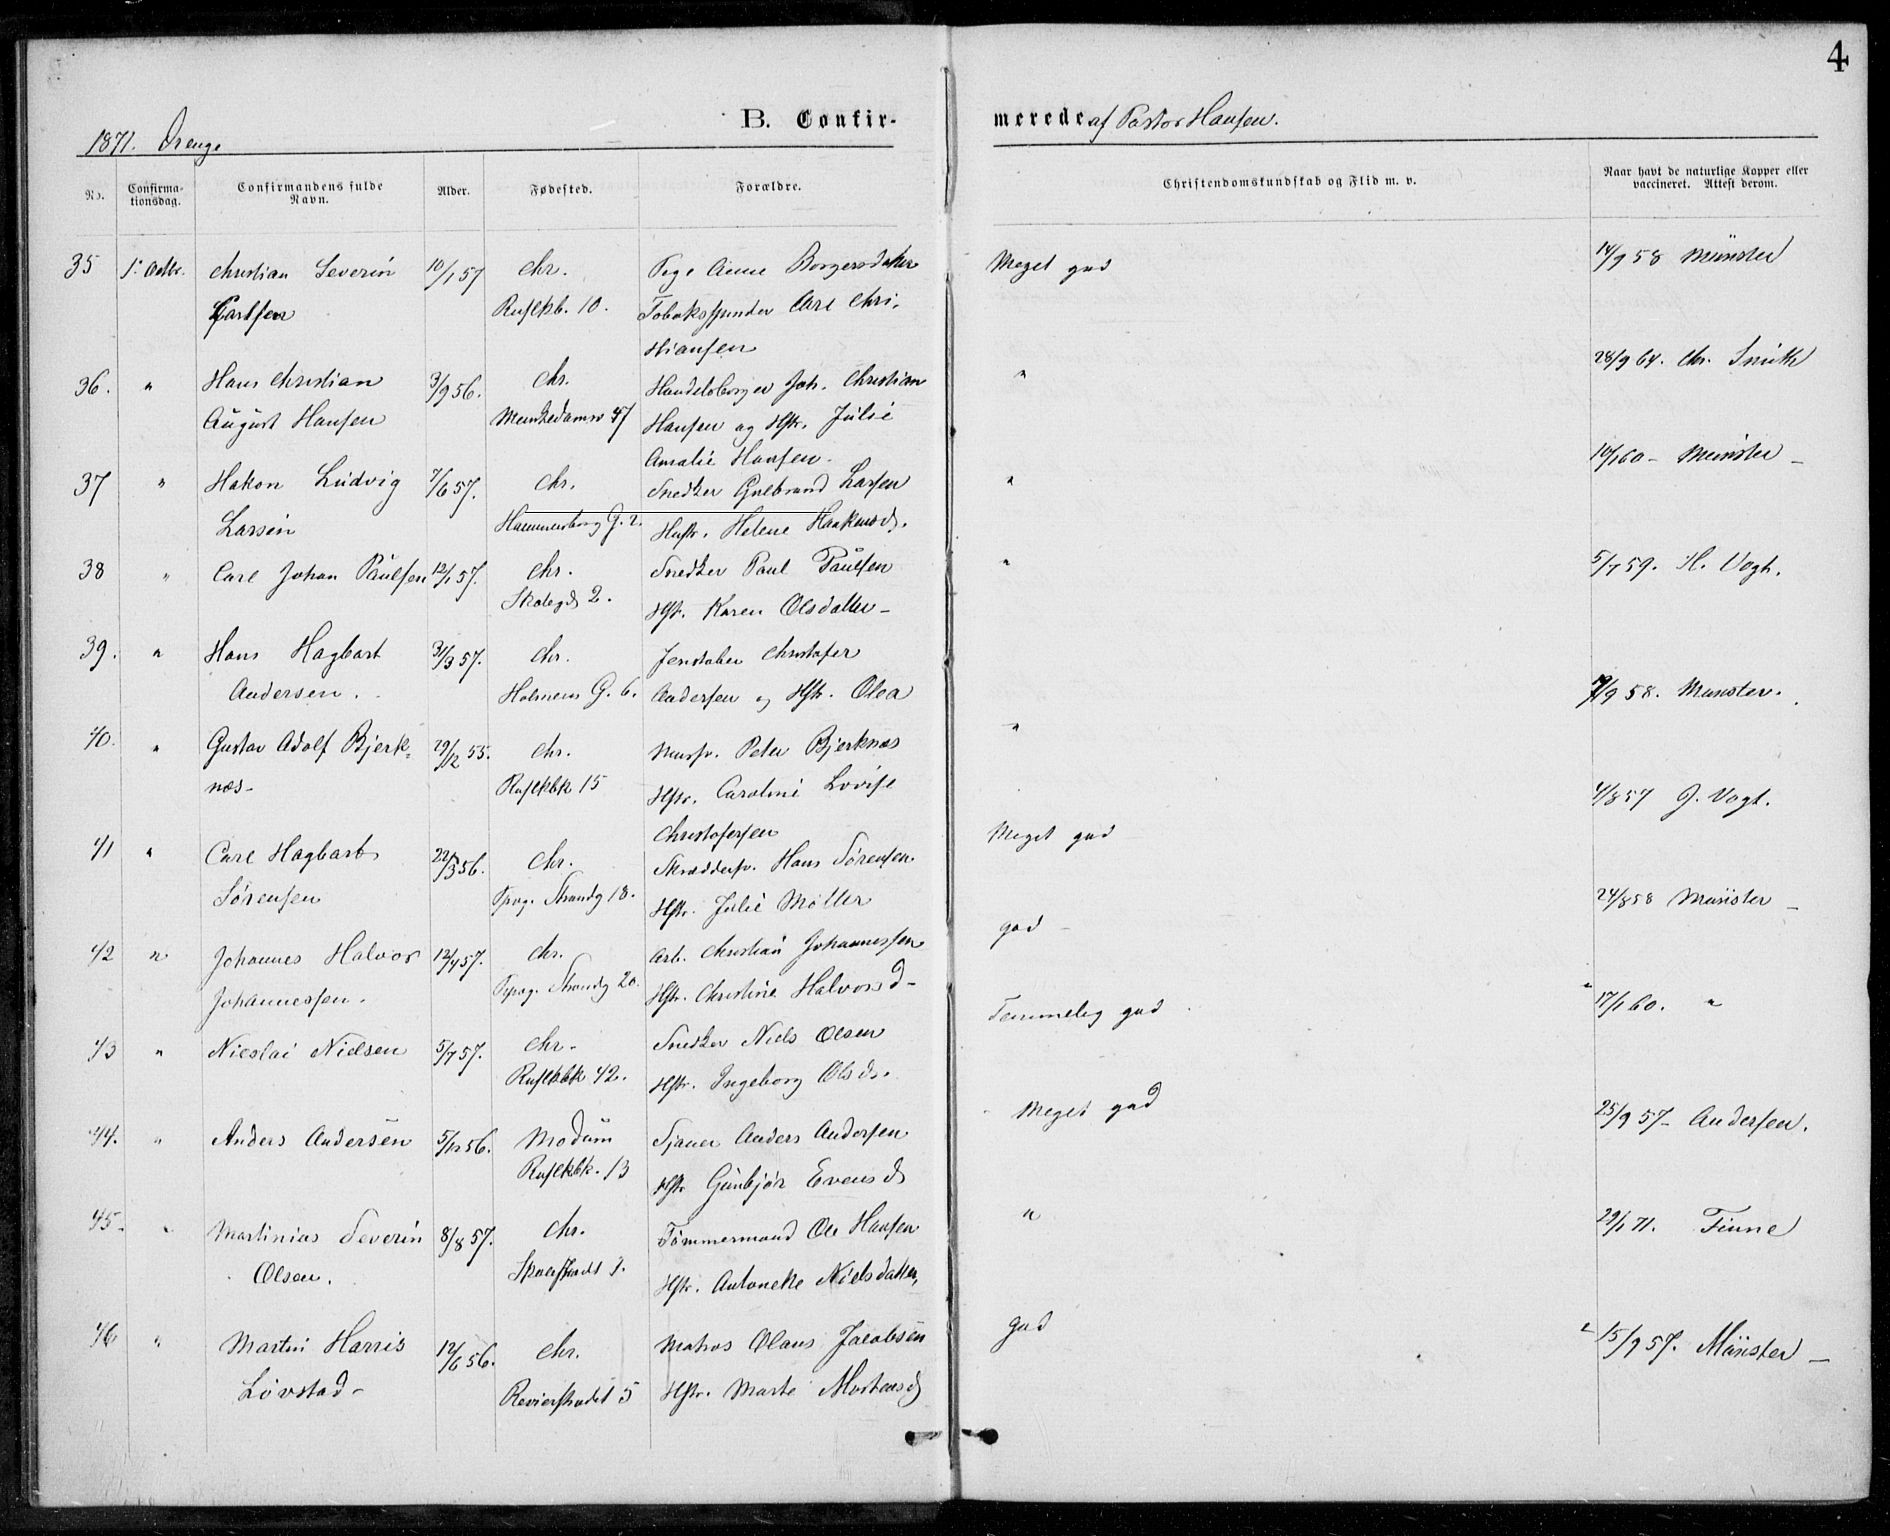 4
1871. Drenge
B. Confir-
merede af Pastor Hansen.
No.
Confirma-
tionsdag.
Confirmandens fulde
Navn.
Alder.
Fødested.
Forældre.
Christendomskundskab og Flid m. v.
Naar havt de naturlige Kopper eller
vaccineret. Attest derom.
35 1. Octbr. Christian Severin 10/1 57 Chr. Pige Anne Borgersdatter Meget god 14/9 58 Münster
Carlsen Ruselkb. 10. Tobakspinder Carl Chri-
stiansen
36. " Hans Christian 3/9 56. Chr. Handelsborger Joh. Christian " 28/9 64. Chr. Smith
August Hansen Munkedamsv 47 Hansen og Hstr. Julie
Amalie Hansen.
37 " Hakon Ludvig 7/6 57. Chr. Snedker Gulbrand Larsen " 10/1 60 - Münster -
Larsen Hammersborg G. 2. Hustr. Helene Haakensd.
38 " Carl Johan Paulsen 12/1 57. Chr. Snedker Paul Paulsen " 5/7 59. H. Vogt.
Skolegd 2. Hst. Karen Olsdatter -
39. " Hans Hagbart 31/3 57. Chr. Christofer
Andersen. Holmens G. 6. Andersen og Hstr. Olea 7/9 58. Münster.
40. " Gustav Adolf Bjerk- 29/12 55. Chr. Mursv. Peter Bjerknæs "
næs - Ruselkbk 15 Hstr. Caroline Lovise 4/8 57 J. Vogt.
Christofersen
41 " Carl Hagbart 22/3 56. Chr. Skræddersv. Hans Sørensen Meget god
Sørensen Pipvg. Strandg 18. Hstr. Julie Møller 24/8 58 Münster -
42 " Johannes Halvor 12/4 57. Chr. Arb. Christian Johannessen god -
Johannessen. Pipvg. Strandg 20. Hstr. Christine Halvorsd - 17/1 60. "
43 " Nicolai Nielsen 5/7 57. Chr. Snedker Niels Olsen Temmelig god
Ruselkbk 42. Hstr. Ingeborg Olsdr.
44. " Anders Andersen 5/12 56. Modum Sjauer Anders Andersen Meget god 25/9 57 - Andersen.
Ruselkbk. 13 Hstr Gunbjør Evensd
45 - " Martinius Severin 8/8 57. Chr. Tømmermand Ole Hansen " 29/1 71. Finne
Olsen. Hstr. Antonette Nielsdatter,
46. " Martin Harris 12/6 56. Chr. Matros Olaus Jacobsen god 15/9 57. Münster -
Løvstad - Revierstrædet 5 Hstr. Marte Mortensd